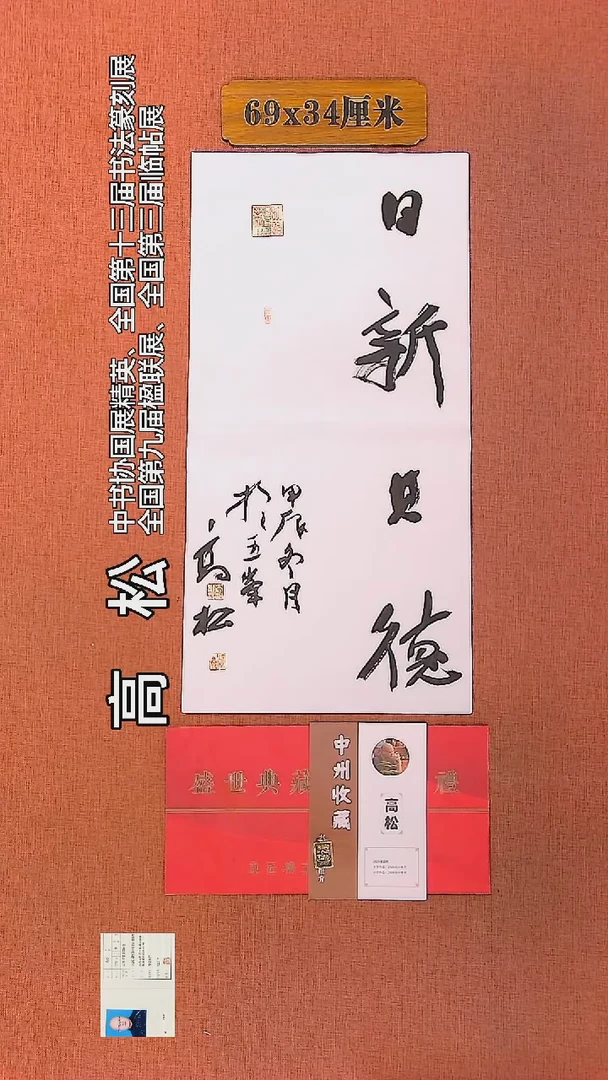 69x34厘米
日新其德
甲辰冬月
於玉峯
高松
高松
中书协国展精英、全国第十三届书法篆刻展
全国第九届楹联展、全国第三届临帖展
盛世典藏
禮
中州收藏
高松